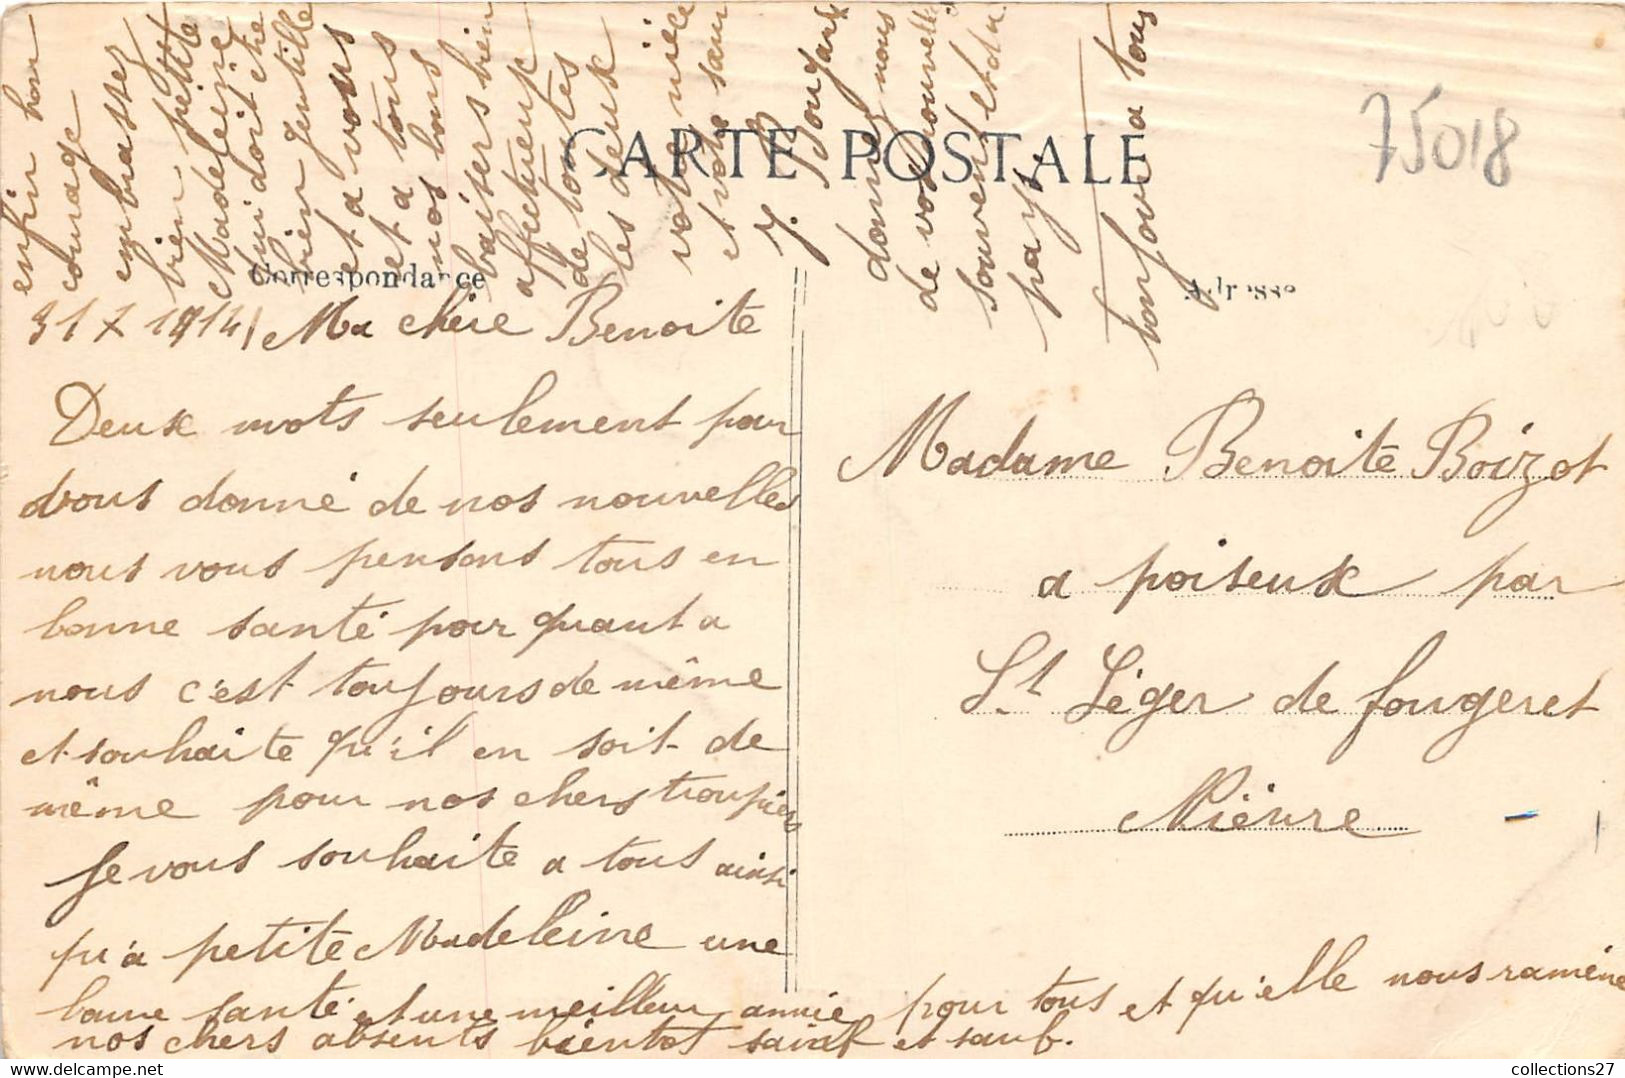 CARTE POSTALE
75018
Correspondance
Adresse
31 7 1914 Ma chère Benoite
Deux mots seulement pour
vous donné de nos nouvelles
nous vous pensons tous en
bonne santé pour quant a
nous c'est toujours de même
et souhaite qu'il en soit de
même pour nos chers troupiers
Je vous souhaite a tous ainsi
qu'a petite Madeleine une
bonne santé et une meilleur année pour tous et qu'elle nous ramène
nos chers absents bientot sainf et sauf.
enfin bon
courage
embrassez
bien petite
Madeleine
qui doit être
bien gentille
et a vous
et a tous
nos bons
baisers bien
affectueux
de toutes
les deux
votre nièce
et votre sœur
donnez nous
de vos nouvelles
souvent et du
pays
bonjour a tous
Madame Benoite Boizot
a poiseux par
St Léger de fougeret
Nièvre
https://www.delcampe.net
collections27